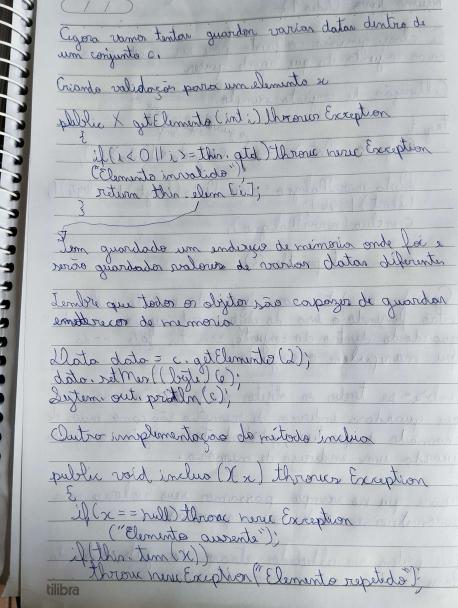 Agora vamos tentar guardar varias datas dentro de
um conjunto c.
Criando validações para um elemento x
public X getElemento(int i) throws Exception
{
if(i<0 || i>=this.qtd) throw new Exception
("Elemento invalido");
return this.elem[i];
}
Tem guardado um endereço de memoria onde foi e
serão guardados valores de varias datas diferentes
Lembre que todos os objetos são capazes de guardar
endereços de memoria
Data data = c.getElemento(2);
data.setMes((byte)6);
System.out.println(c);
Outra implementação do método inclua
public void inclua (X x) throws Exception
{
if(x==null) throw new Exception
("Elemento ausente");
if(this.tem(x))
throw new Exception("Elemento repetido");
tilibra